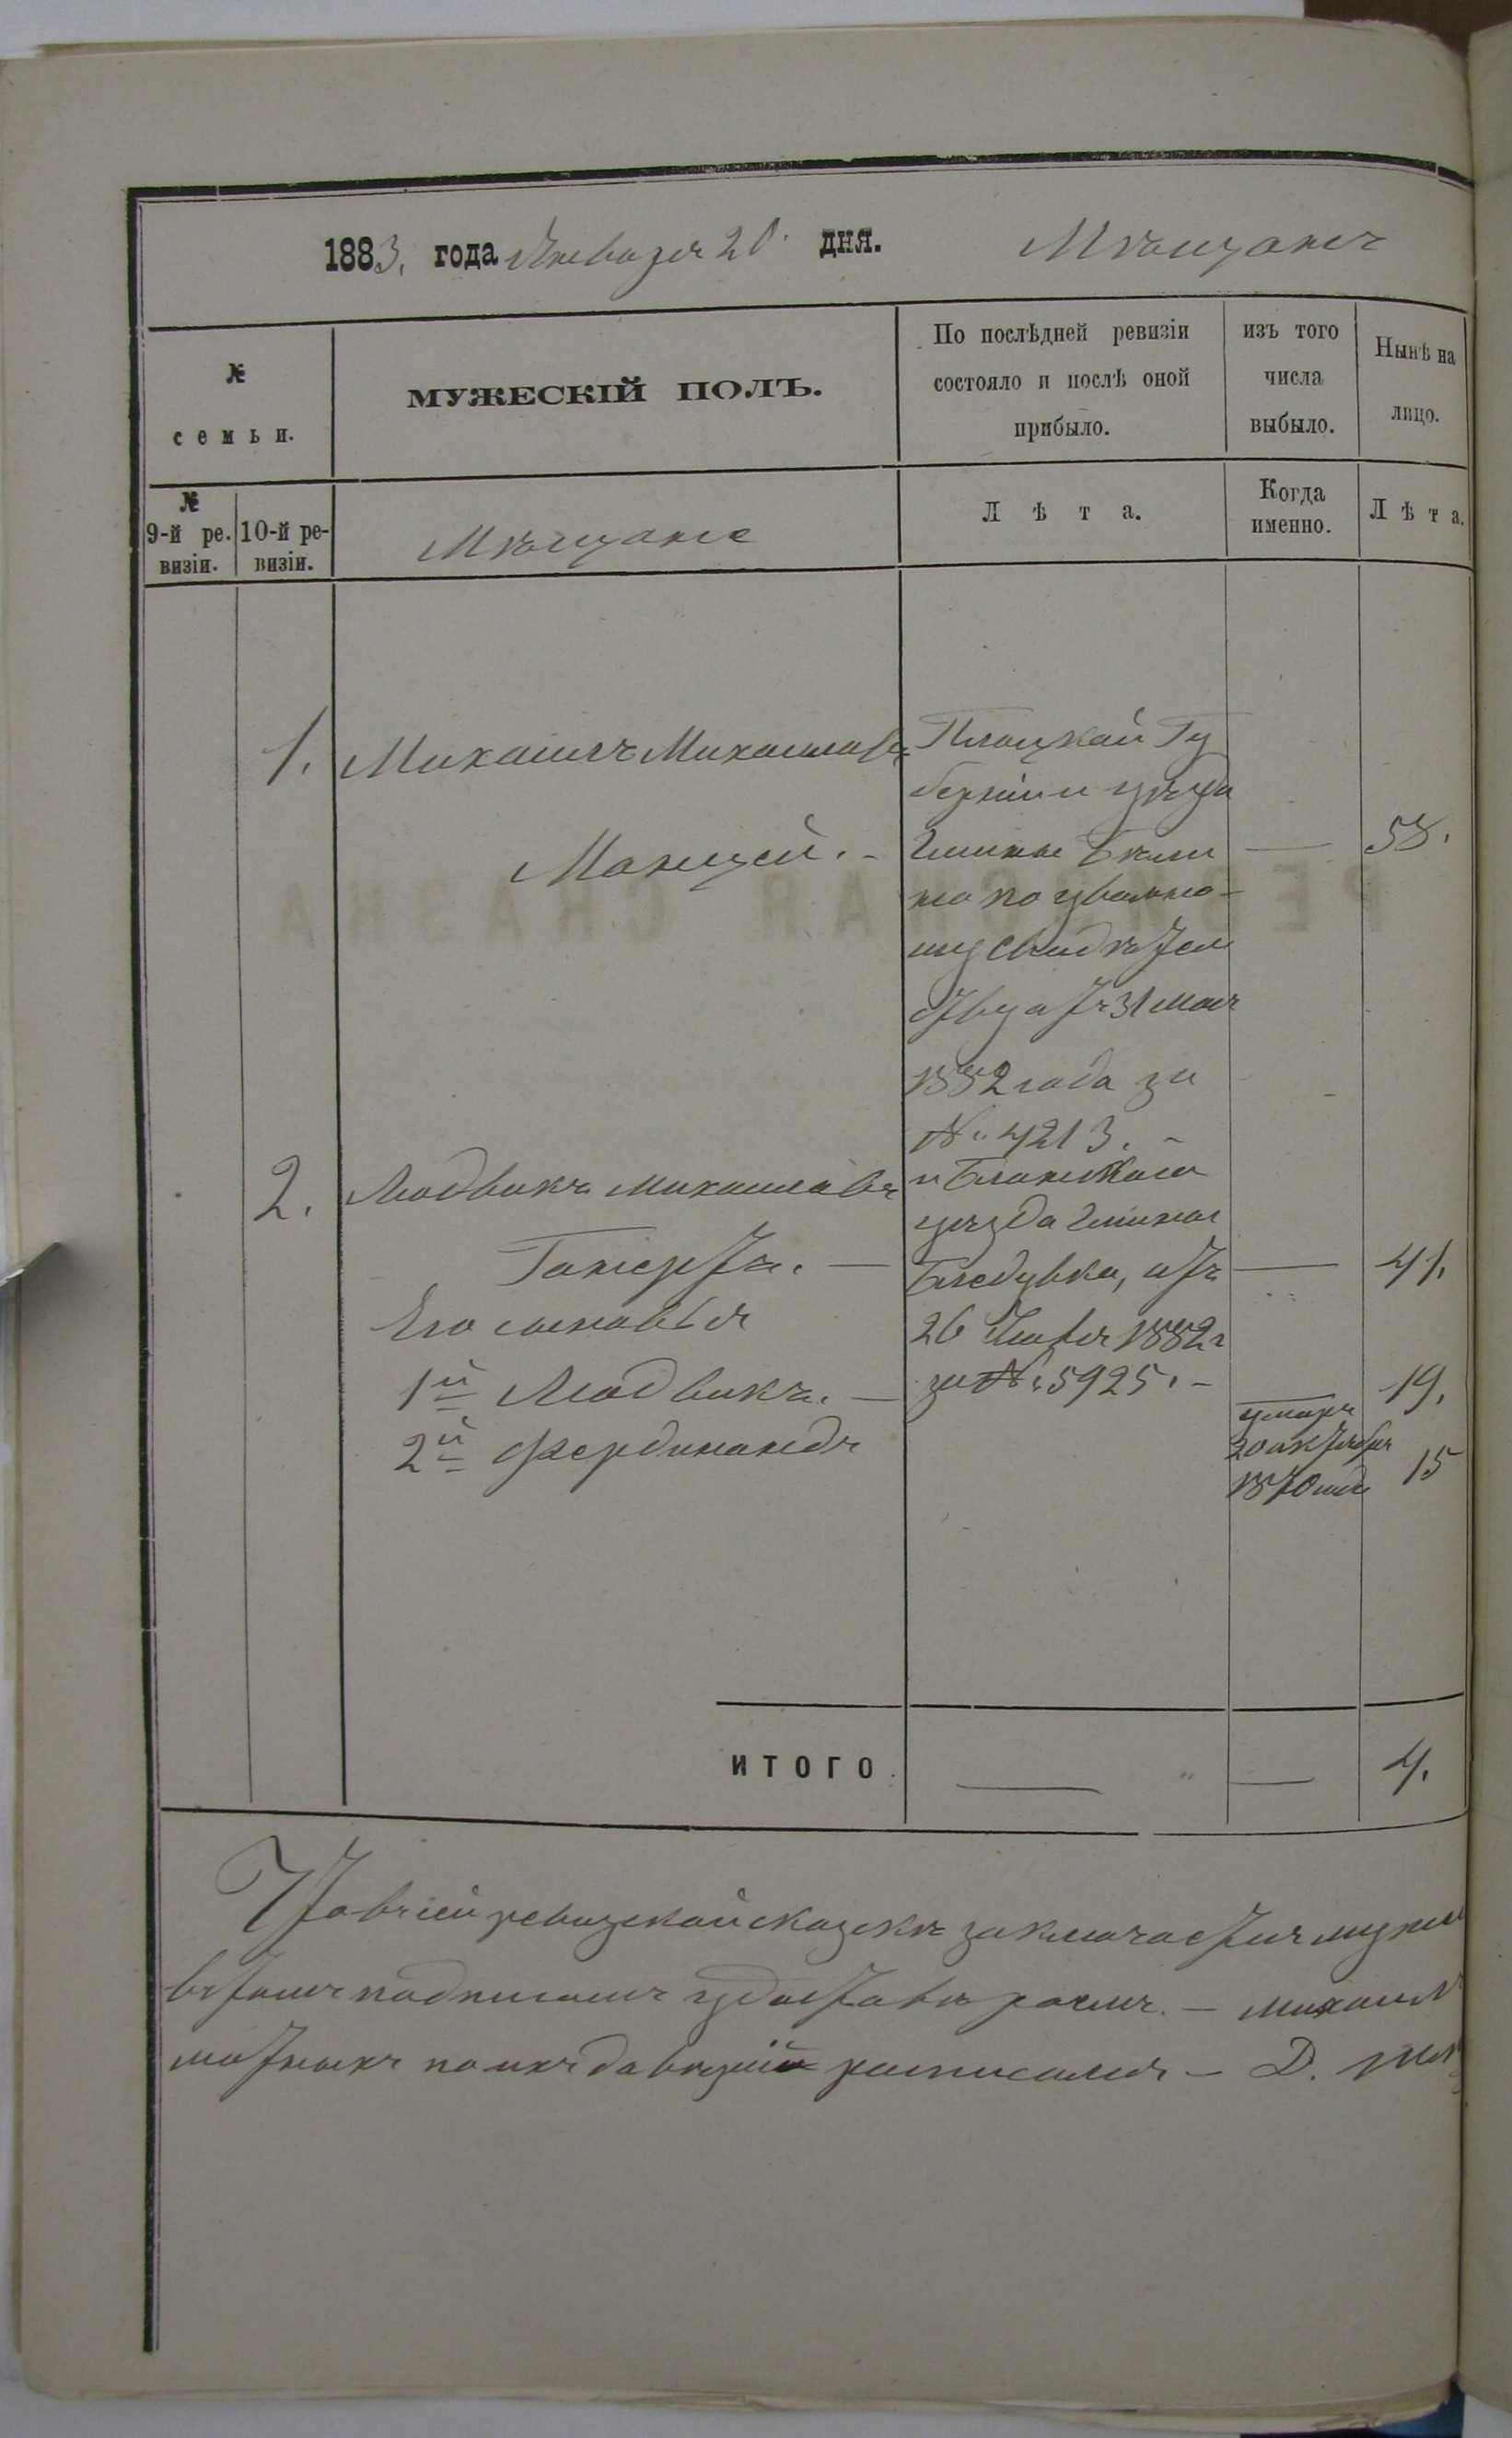 1883. года Января 20. дня. Мѣщанъ
№ семьи.
МУЖЕСКІЙ ПОЛЪ.
По послѣдней ревизіи
состояло и послѣ оной
прибыло.
изъ того
числа
выбыло.
Нынѣ на
лицо.
№
9-й ре-
визіи.
10-й ре-
визіи.
Мѣщане
Лѣта.
Когда
именно.
Лѣта.
1. Михаилъ Михайловъ
Манцей. -
Плоцкой Гу
берніи и уѣзда
Гмины
по увольно-
му свидѣтель
ству отъ 31 мая
1882 года за
№ 4213. -
— 58.
2. Людвикъ Михайловъ
Гантертъ. —
и Блонскаго
уѣзда Гмины
отъ
26 1882 г
за № 5925. -
— 41.
Его сыновья
1й Людвикъ. — 19.
2й Фердинандъ
умеръ
20 октября
1870 года
15
ИТОГО. — " — 4.
Что въ сей ревизской сказкѣ заключается
въ томъ подписомъ удостовѣряемъ. — Михаил
по ихъ довѣрію росписался — Д.